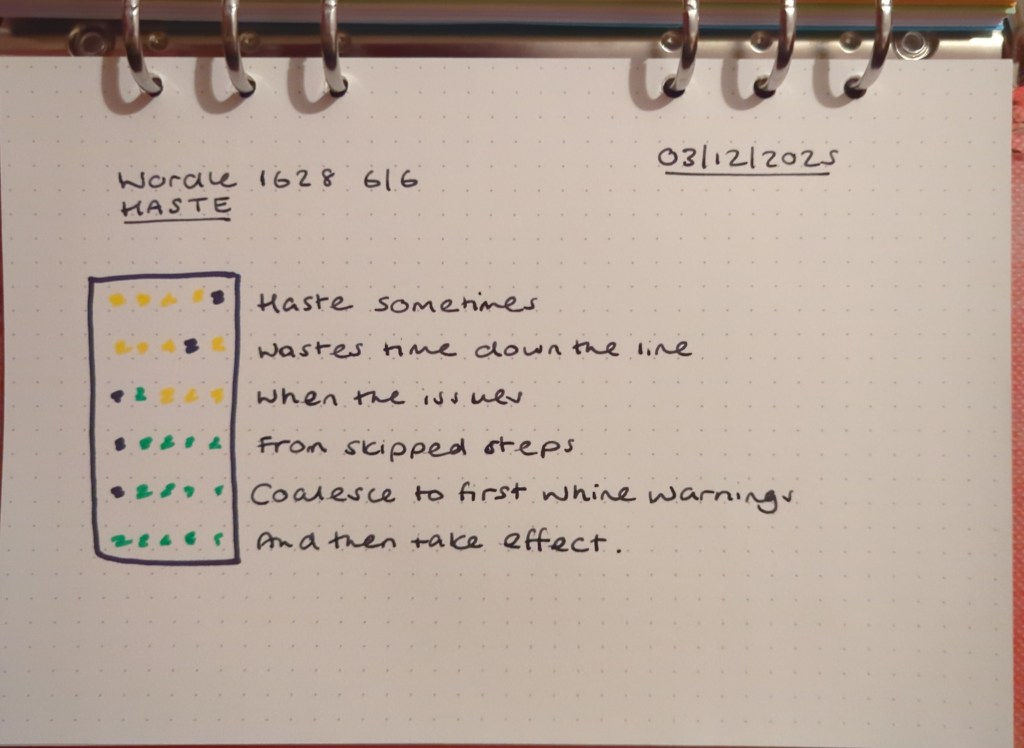 03/12/2025
Wordle 1628 6/6
HASTE
Haste sometimes
Wastes time down the line
When the issues
From skipped steps
Coalesce to first whine warnings
And then take effect.